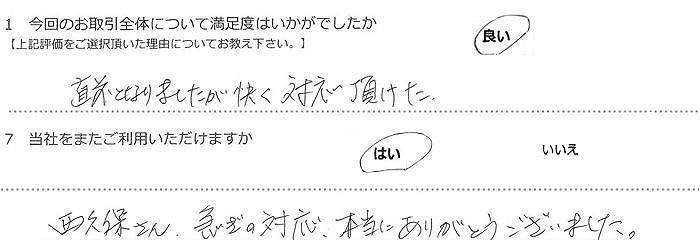 1 今回のお取引全体について満足度はいかがでしたか 良い
【上記評価をご選択頂いた理由についてお教え下さい。】
直前となりましたが快く対応頂けた.
7 当社をまたご利用いただけますか はい いいえ
西久保さん、急ぎの対応、本当にありがとうございました。